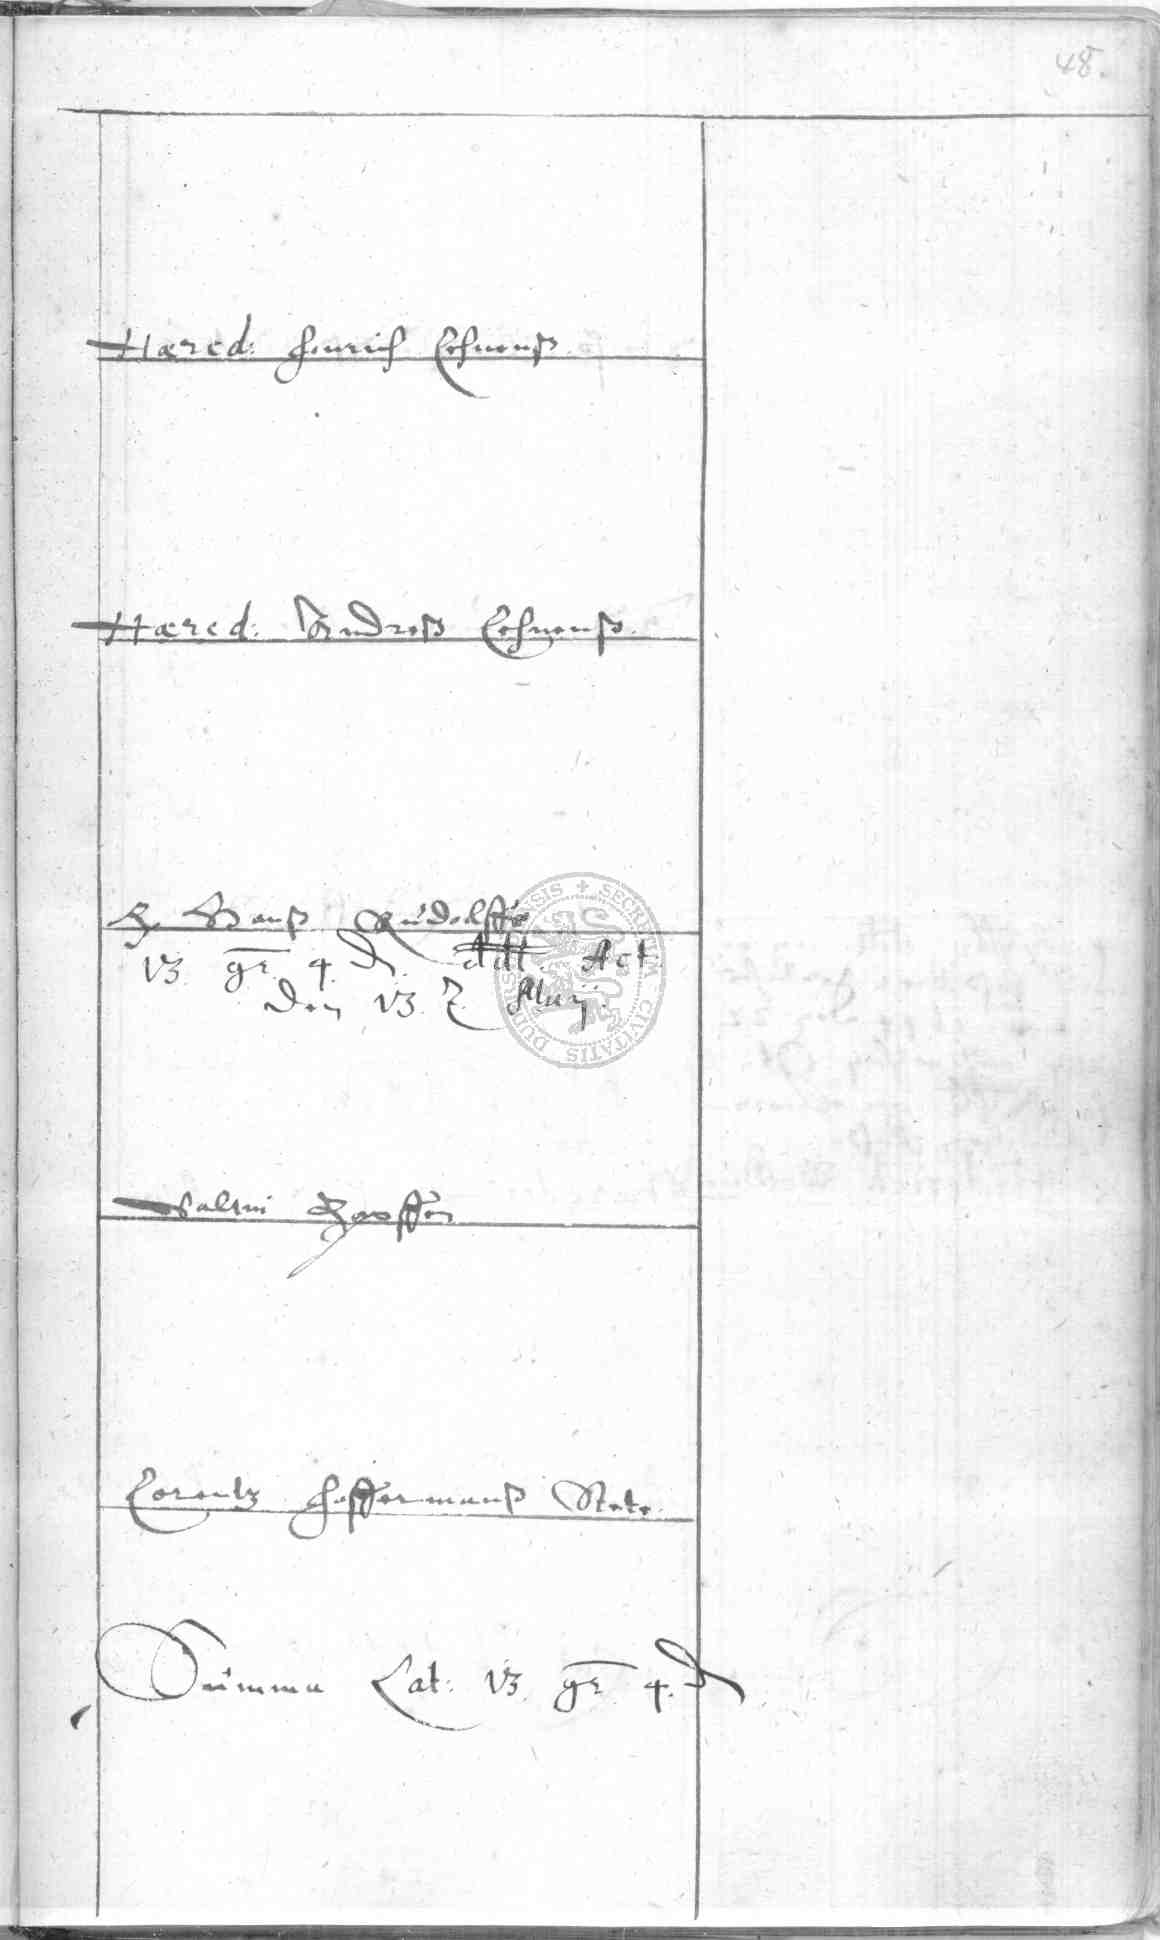 48.
Hæred: Henrich Lehnenß
Hæred: Andreß Lehnenß.
H Hanß Rudolff
13. gr. 4. ₰. ddt. Act
den 13. Maij.
Valtin
Lorentz Heffermanß Stete.
Summa Lat: 13. gr. 4. ₰
SECRETUM CIVITATIS DUDERSTADENSIS